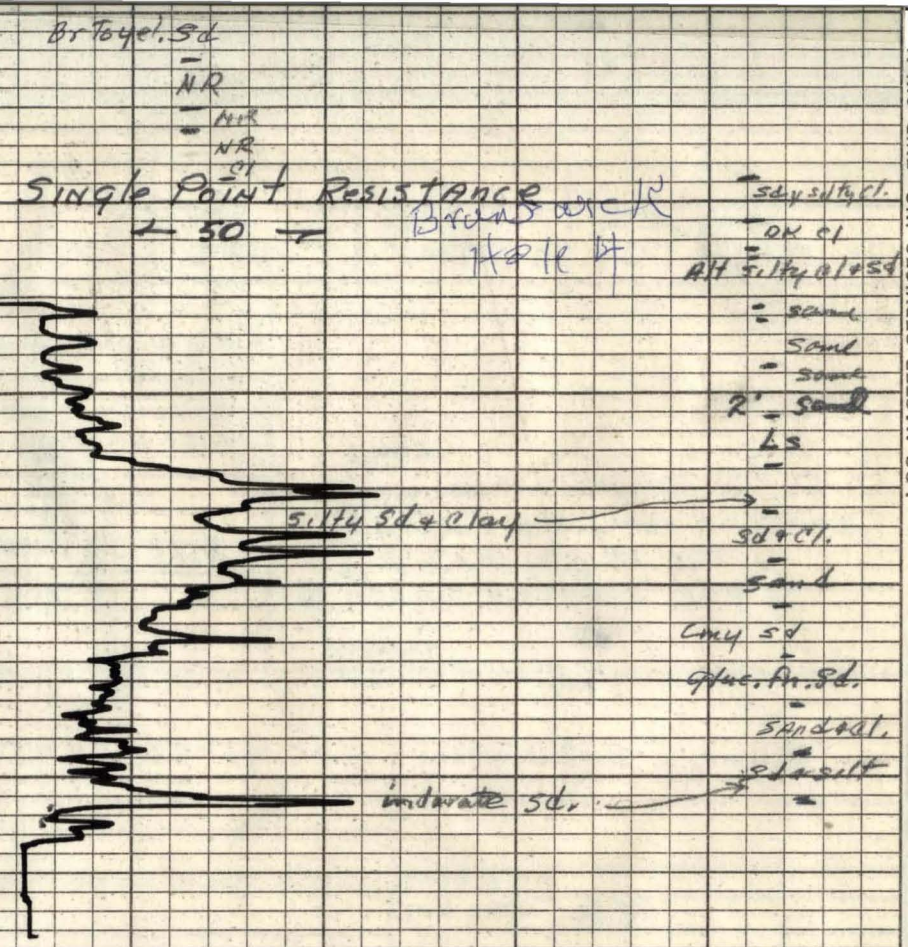 Br To yel. Sd
NR
NR
NR
Cl
Single Point Resistance
50
Brunswick
Hole 4
sdy silty cl.
DK cl
Alt silty cl + sd
same
same
same
2' sand
Ls
silty sd + clay
sd + cl.
sand
Lmy sd
fn. sd.
sand + cl.
sd + silt
indurate sd.